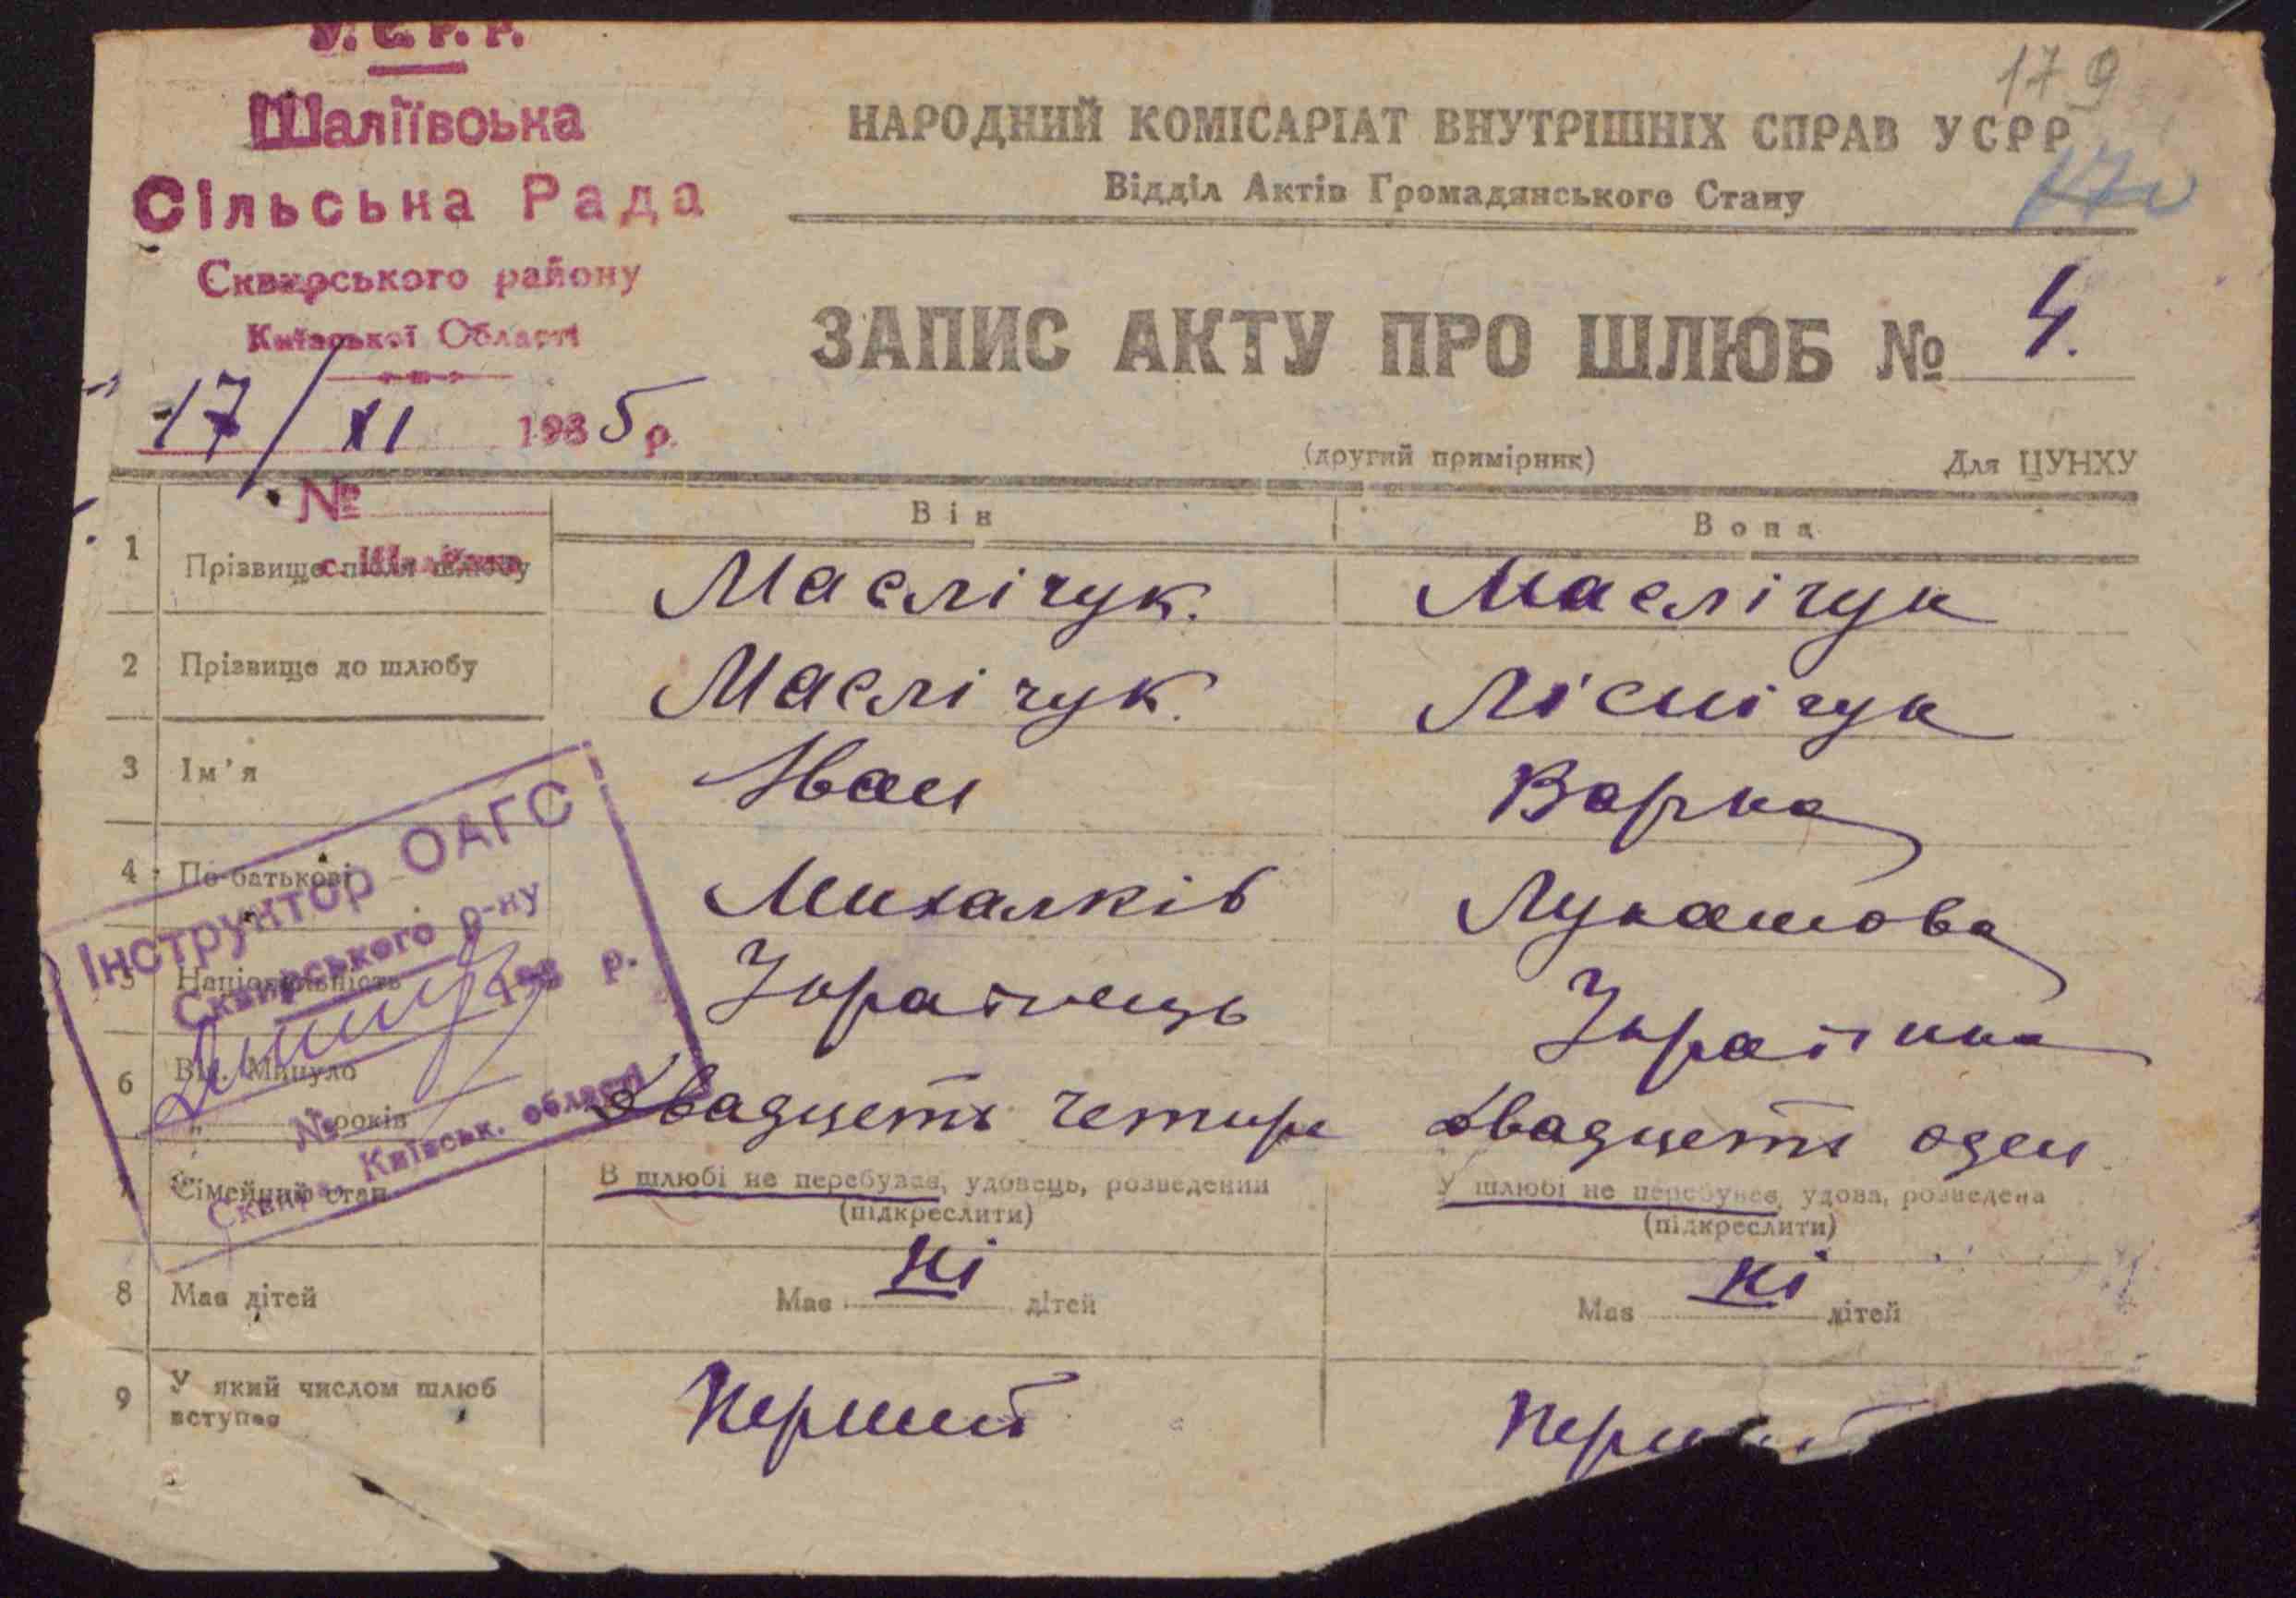 У. С. Р. Р.
Шаліївська
Сільська Рада
Сквирського району
Київської Області
17/XI 1935 р.
№
179
НАРОДНИЙ КОМІСАРІАТ ВНУТРІШНІХ СПРАВ УСРР
Відділ Актів Громадянського Стану
ЗАПИС АКТУ ПРО ШЛЮБ № 4.
(другий примірник) Для ЦУНХУ
Він Вона
1 Прізвище після шлюбу Маслічук. Маслічук
2 Прізвище до шлюбу Маслічук. Лісничук
3 Ім'я Іван Варка
4 По-батькові Михалків Лукашова
5 Національність Українець Українка
6 Вік. Минуло років Двадцеть четире Двадцеть оден
7 Сімейний стан В шлюбі не перебував, удовець, розведений У шлюбі не перебуває, удова, розведена
(підкреслити) (підкреслити)
8 Має дітей Має ні дітей Має ні дітей
9 У який числом шлюб вступає Перший Перший
Інструктор ОАГС
Сквирського р-ну
193 р.
№
Сквира, Київськ. області